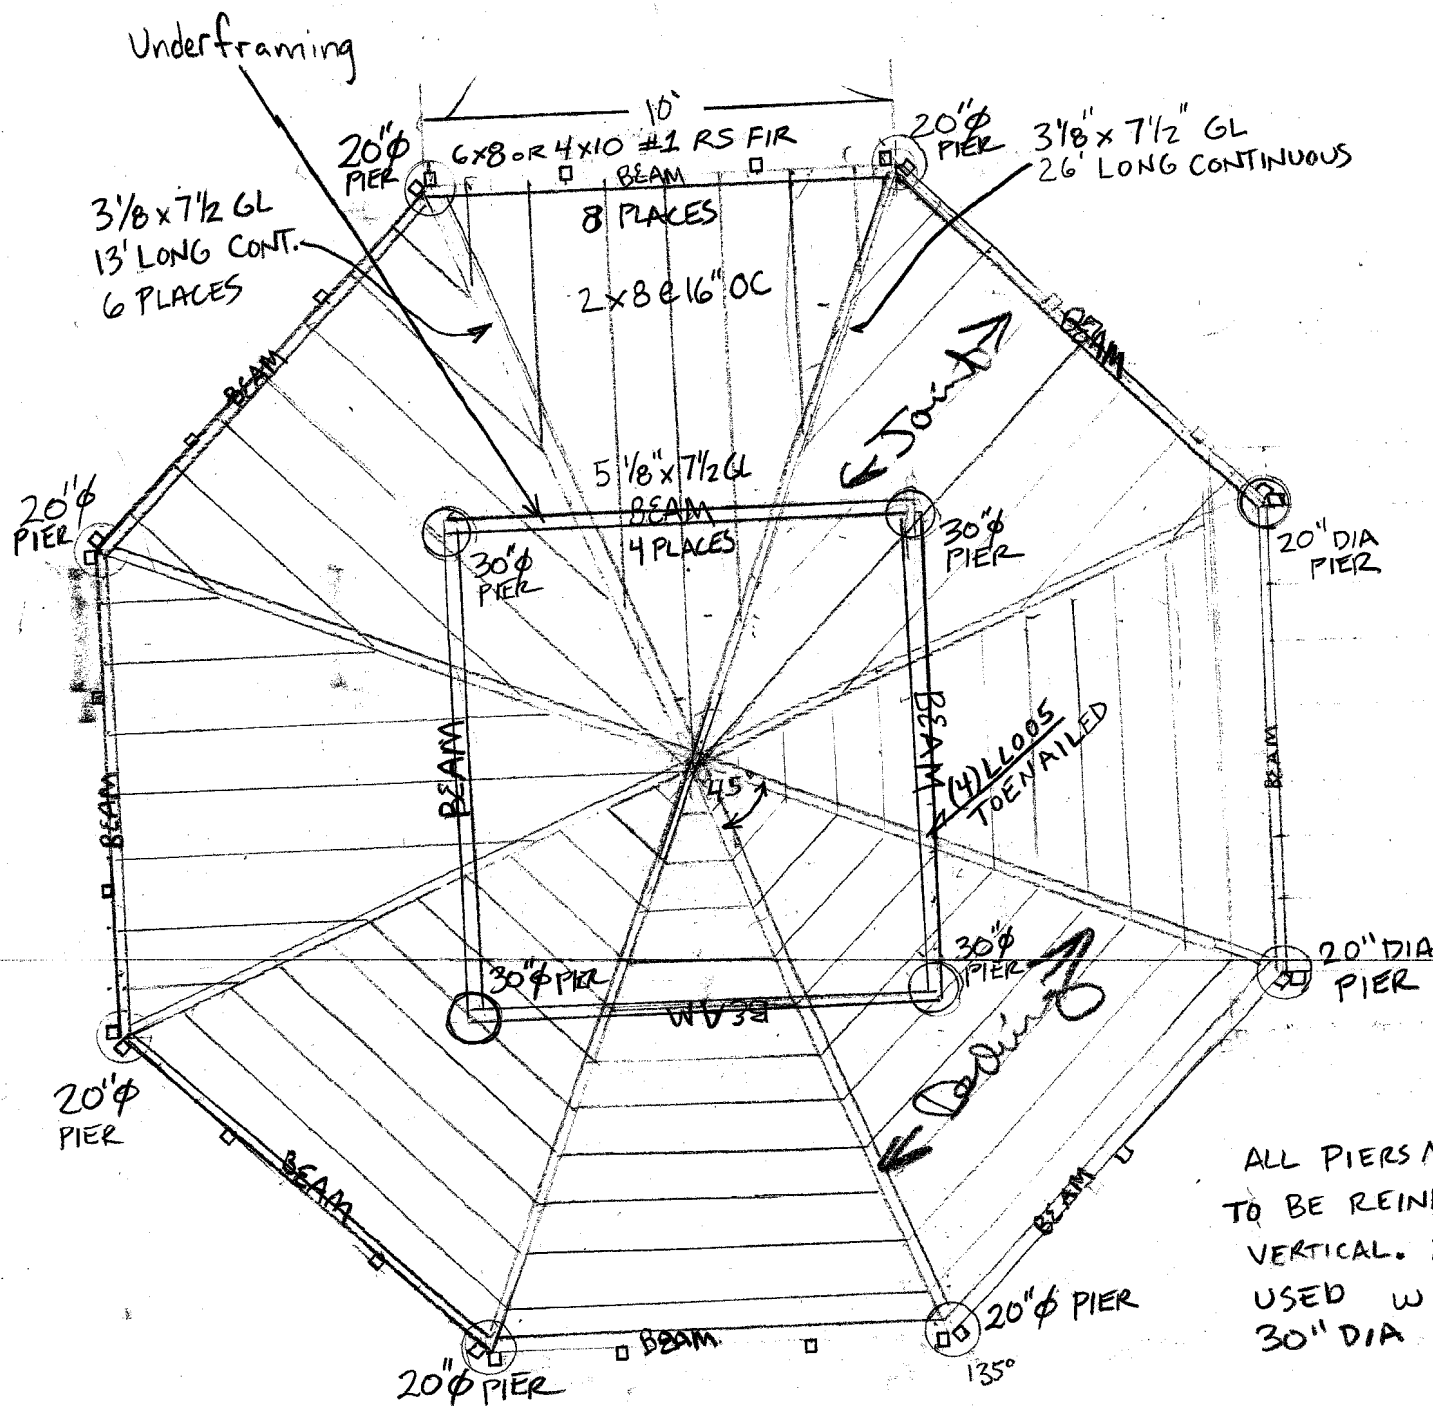 Underframing
10'
20"ϕ
PIER
6x8 OR 4x10 #1 RS FIR
BEAM
8 PLACES
20"ϕ
PIER
3 1/8" x 7 1/2" GL
26' LONG CONTINUOUS
3 1/8 x 7 1/2 GL
13' LONG CONT.
6 PLACES
2x8 @ 16" OC
BEAM
BEAM
Joint
5 1/8" x 7 1/2 GL
BEAM
4 PLACES
20"ϕ
PIER
30"ϕ
PIER
30"ϕ
PIER
20" DIA
PIER
BEAM
BEAM
BEAM
BEAM
45°
(4) LL005
TOENAILED
30"ϕ PIER
30"ϕ
PIER
BEAM
20" DIA
PIER
20"ϕ
PIER
BEAM
BEAM
ALL PIERS
TO BE
VERTICAL.
USED
30" DIA
20"ϕ PIER
BEAM
135°
20"ϕ PIER